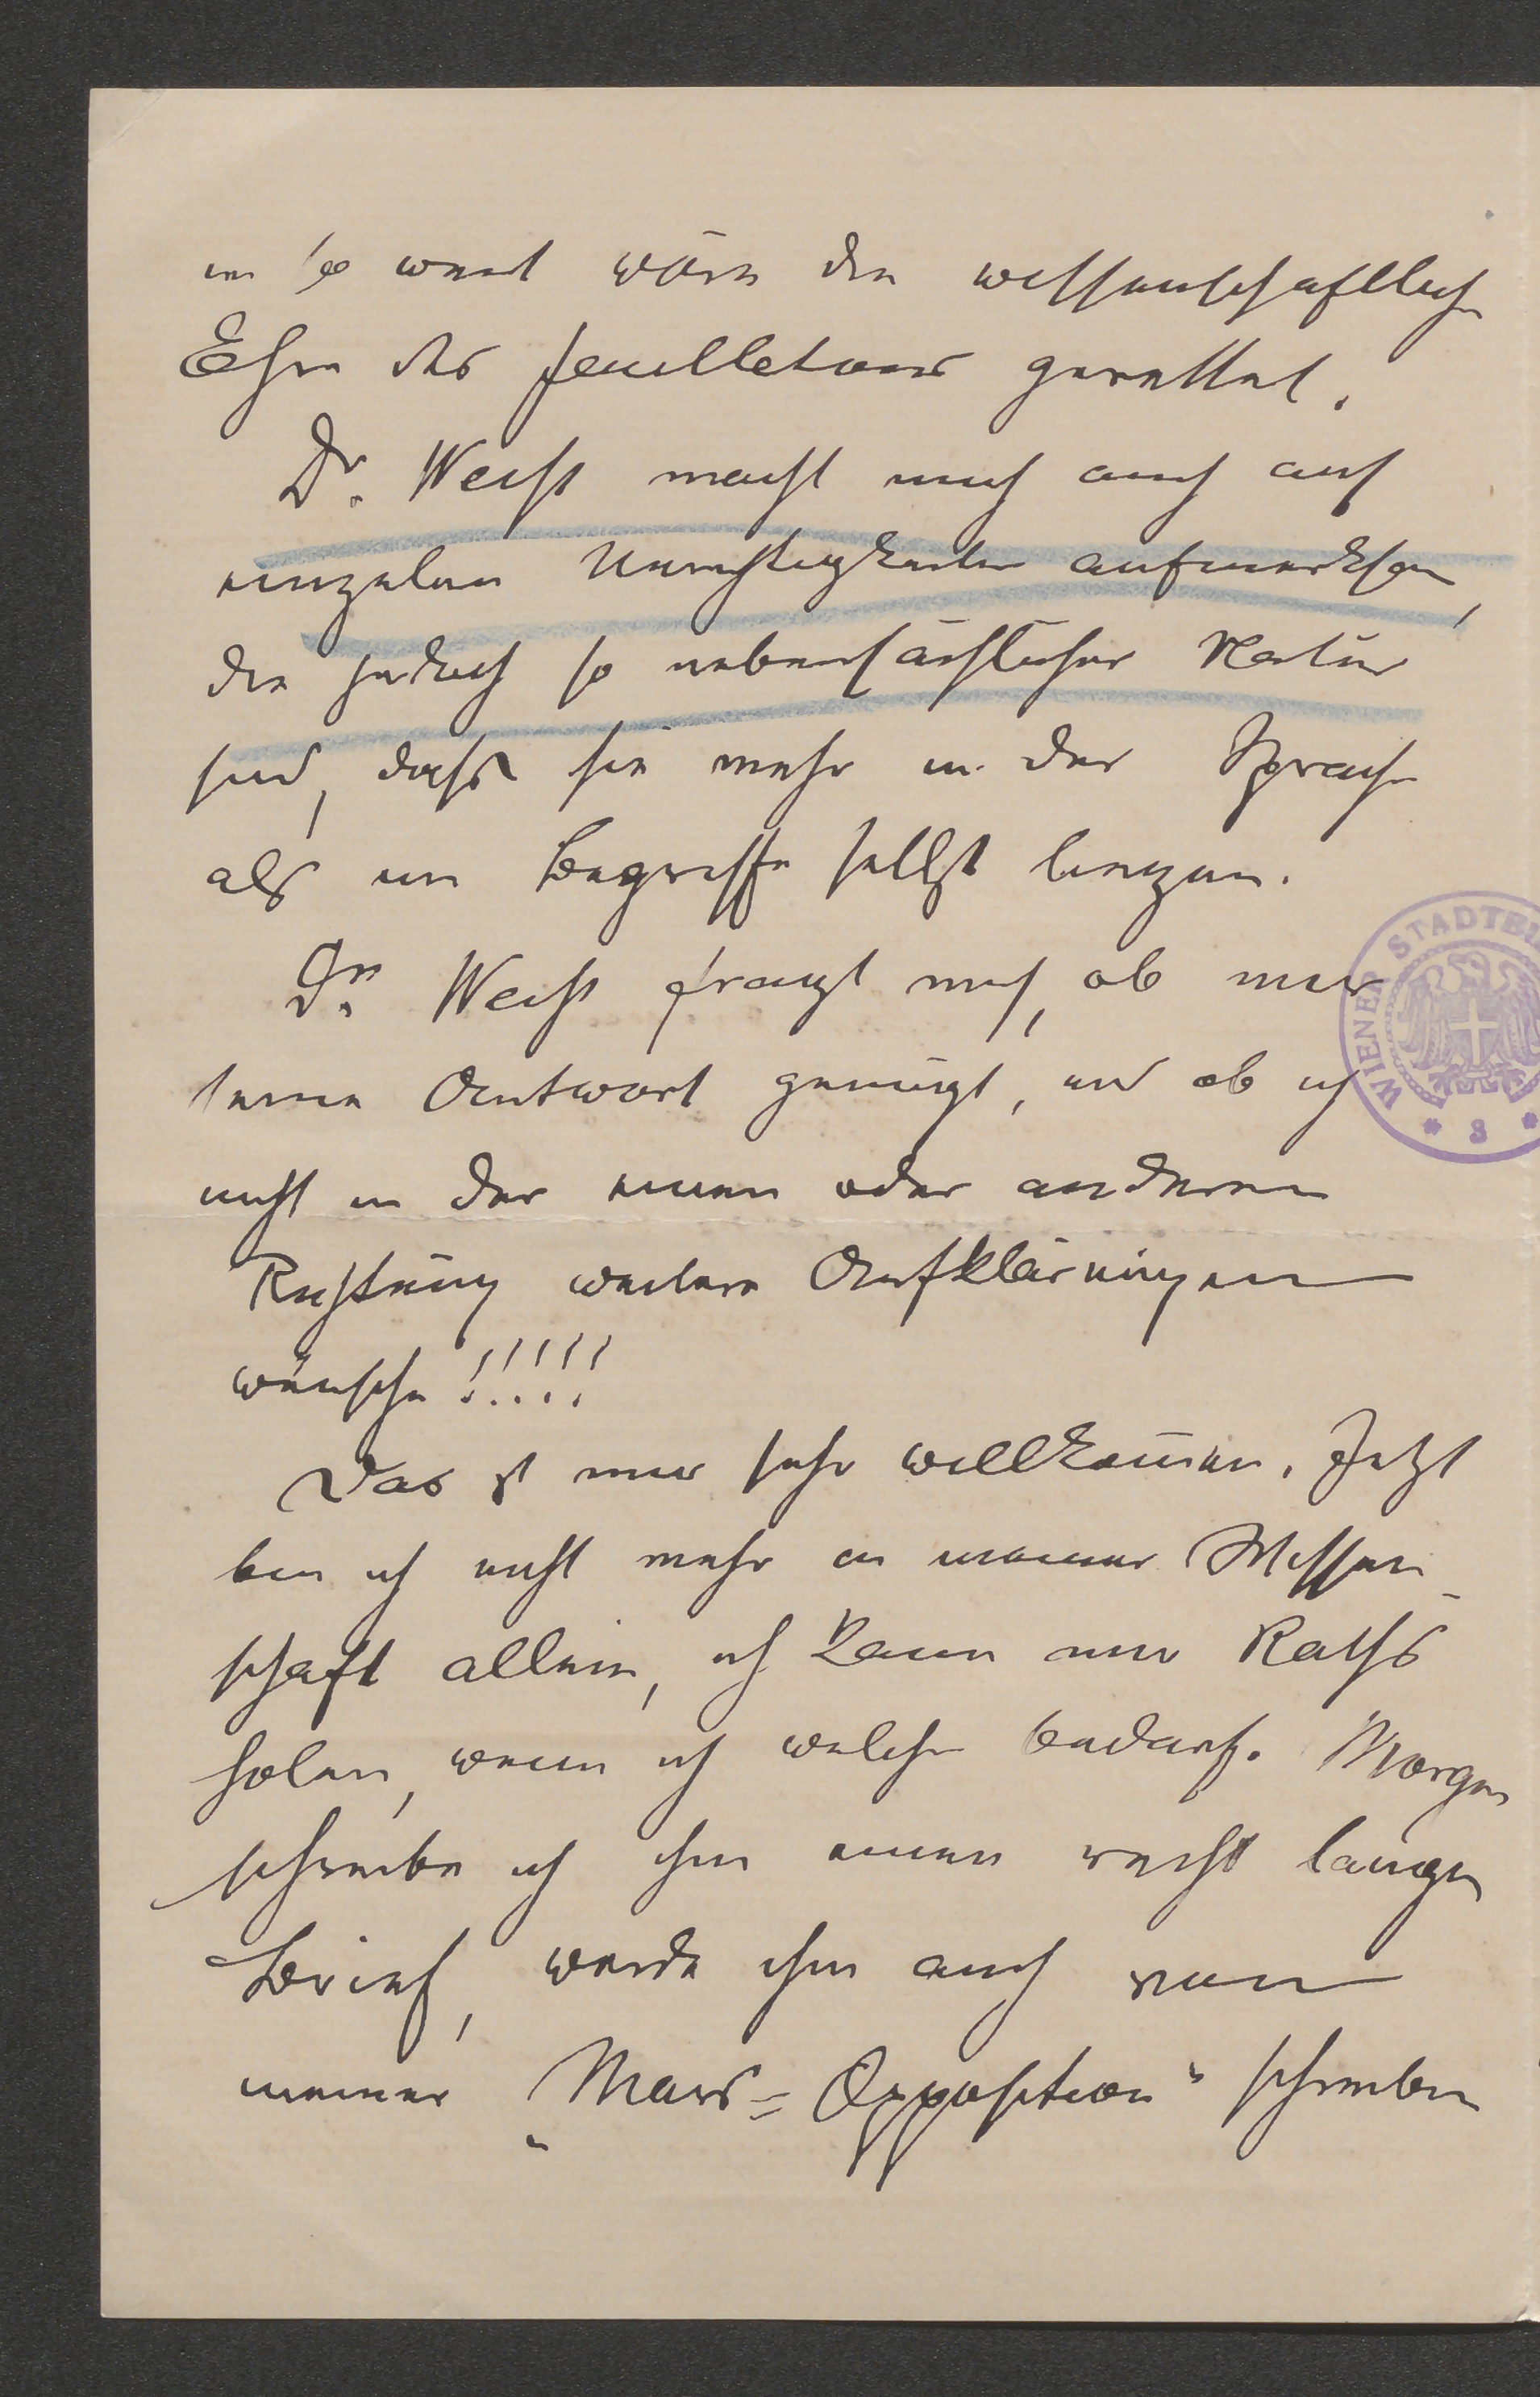 in so weit wäre die wissenschaftliche
Ehre des Feuilletons gerettet.
Dr. Weiß macht mich auch auf
einzelne Unrichtigkeiten aufmerksam,
die jedoch so nebensächlicher Natur
sind, dass sie mehr in der Sprache
als im Begriffe selbst liegen.
Dr. Weiß fragt mich, ob mir
seine Antwort genügt, und ob ich
nicht in der einen oder anderen
Richtung weitere Aufklärungen
wünsche!!!!!
Das ist mir sehr willkommen. Jetzt
bin ich nicht mehr in meiner Wissen-
schaft allein, ich kann mir Raths
holen, wenn ich welchen bedarf. Morgen
schreibe ich ihm einen recht langen
Brief, werde ihm auch von
meiner „Mars-Opposition“ schreiben
WIENER STADTBI
* 3 *